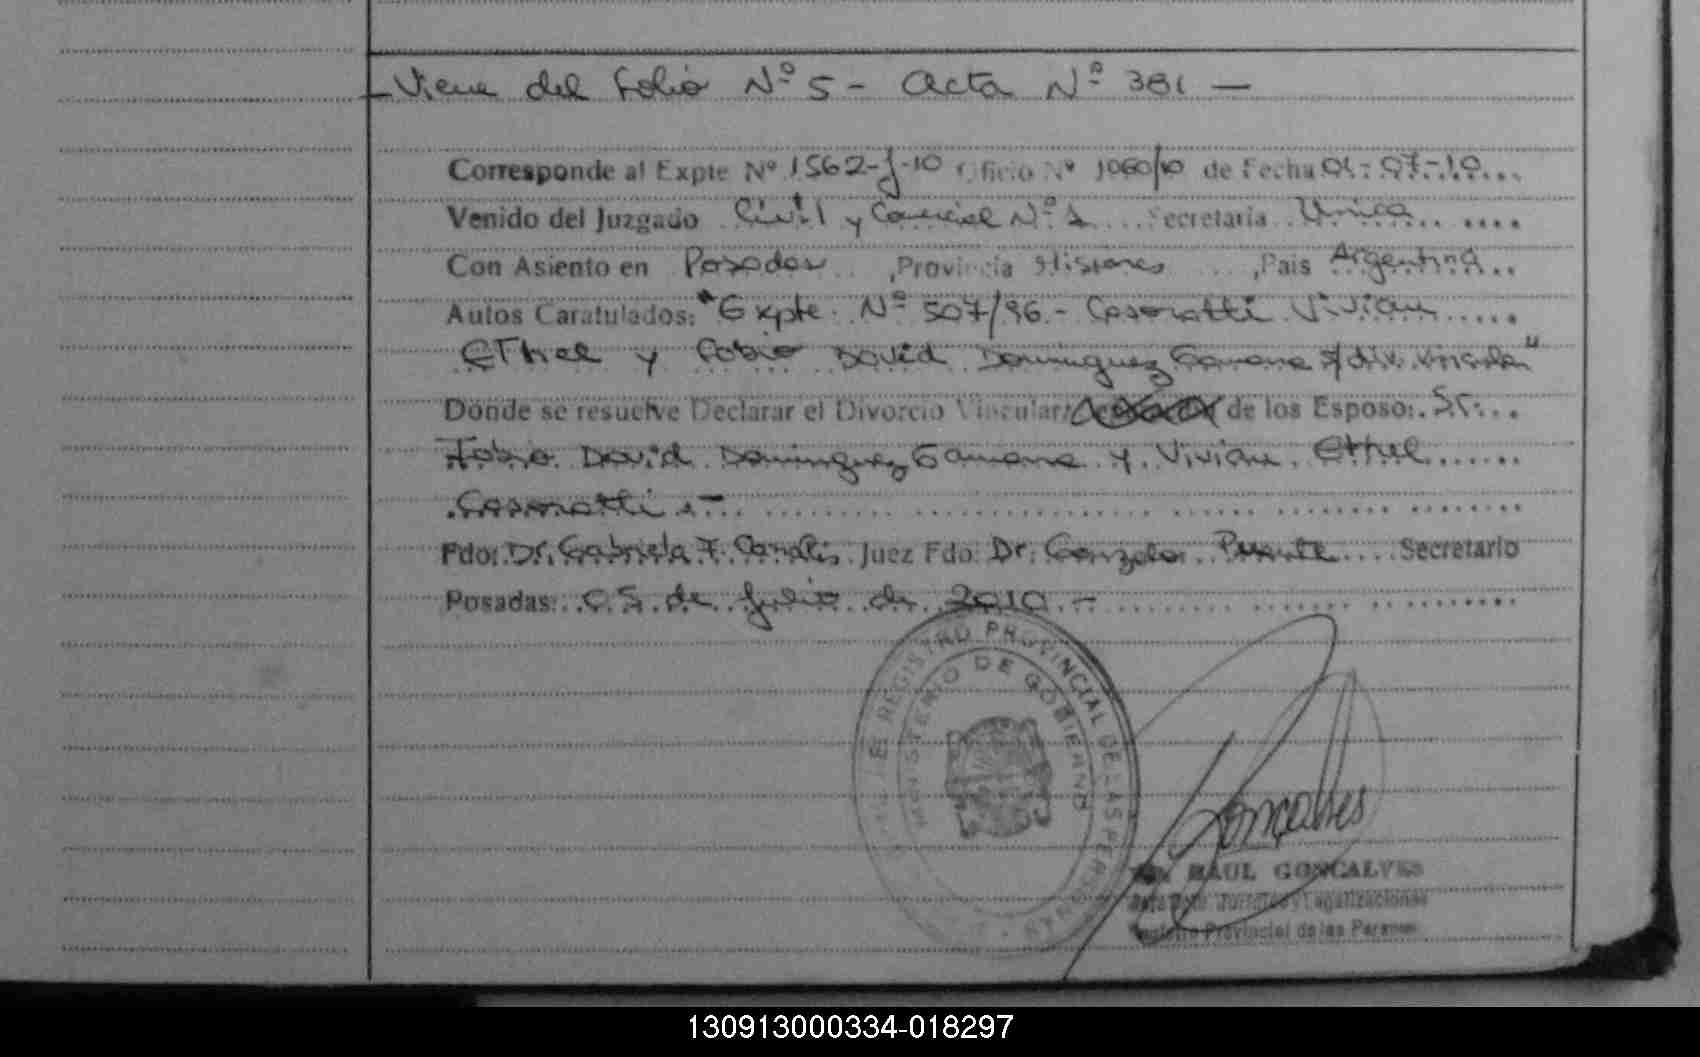 -Viene del folio Nº 5 - Acta Nº 381 -
Corresponde al Expte Nº 1562-J-10 Oficio Nº 1060/10 de Fecha 01-07-10
Venido del Juzgado Civil y Comercial Nº 1 Secretaria Unica
Con Asiento en Posadas, Provincia Misiones, Pais Argentina
Autos Caratulados: "Expte. Nº 507/96 - Casoratti Vivian
Ethel y Fabio David Dominguez Gamarra s/div. vincular"
Donde se resuelve Declarar el Divorcio Vincular de los Esposo: Sr.
Fabio David Dominguez Gamarra y Vivian Ethel
Casoratti.-
Fdo: Dr. Gabriela F. Canalis Juez Fdo: Dr. Gonzalo Puente Secretario
Posadas: 05 de Julio de 2010.-
REGISTRO PROVINCIAL DE LAS PERSONAS
MINISTERIO DE GOBIERNO
Goncalves
RAUL GONCALVES
Jurídico y Legalizaciones
Registro Provincial de las Personas
130913000334-018297